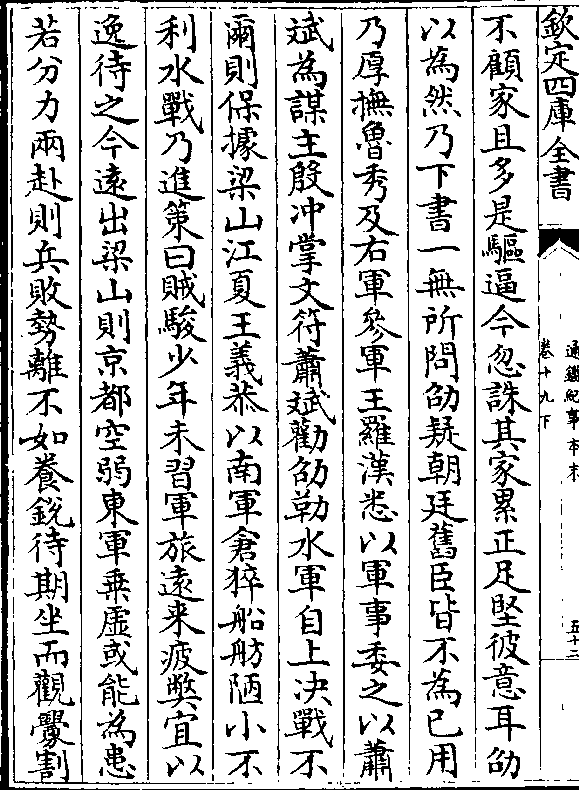 欽定四庫全書
通鑑紀事本末
卷十九下
五十二
不顧家且多是驅逼今忽誅其家累正足堅彼意耳劭
以為然乃下書一無所問劭疑朝廷舊臣皆不為已用
乃厚撫魯秀及右軍參軍王羅漢悉以軍事委之以蕭
斌為謀主殷冲掌文符蕭斌勸劭勒水軍自上決戰不
爾則保據梁山江夏王義恭以南軍倉猝船舫陋小不
利水戰乃進策曰賊駿少年未習軍旅遠来疲弊宜以
逸待之今遠出梁山則京都空弱東軍乗虛或能為患
若分力兩赴則兵敗勢離不如養銳待期坐而觀釁割